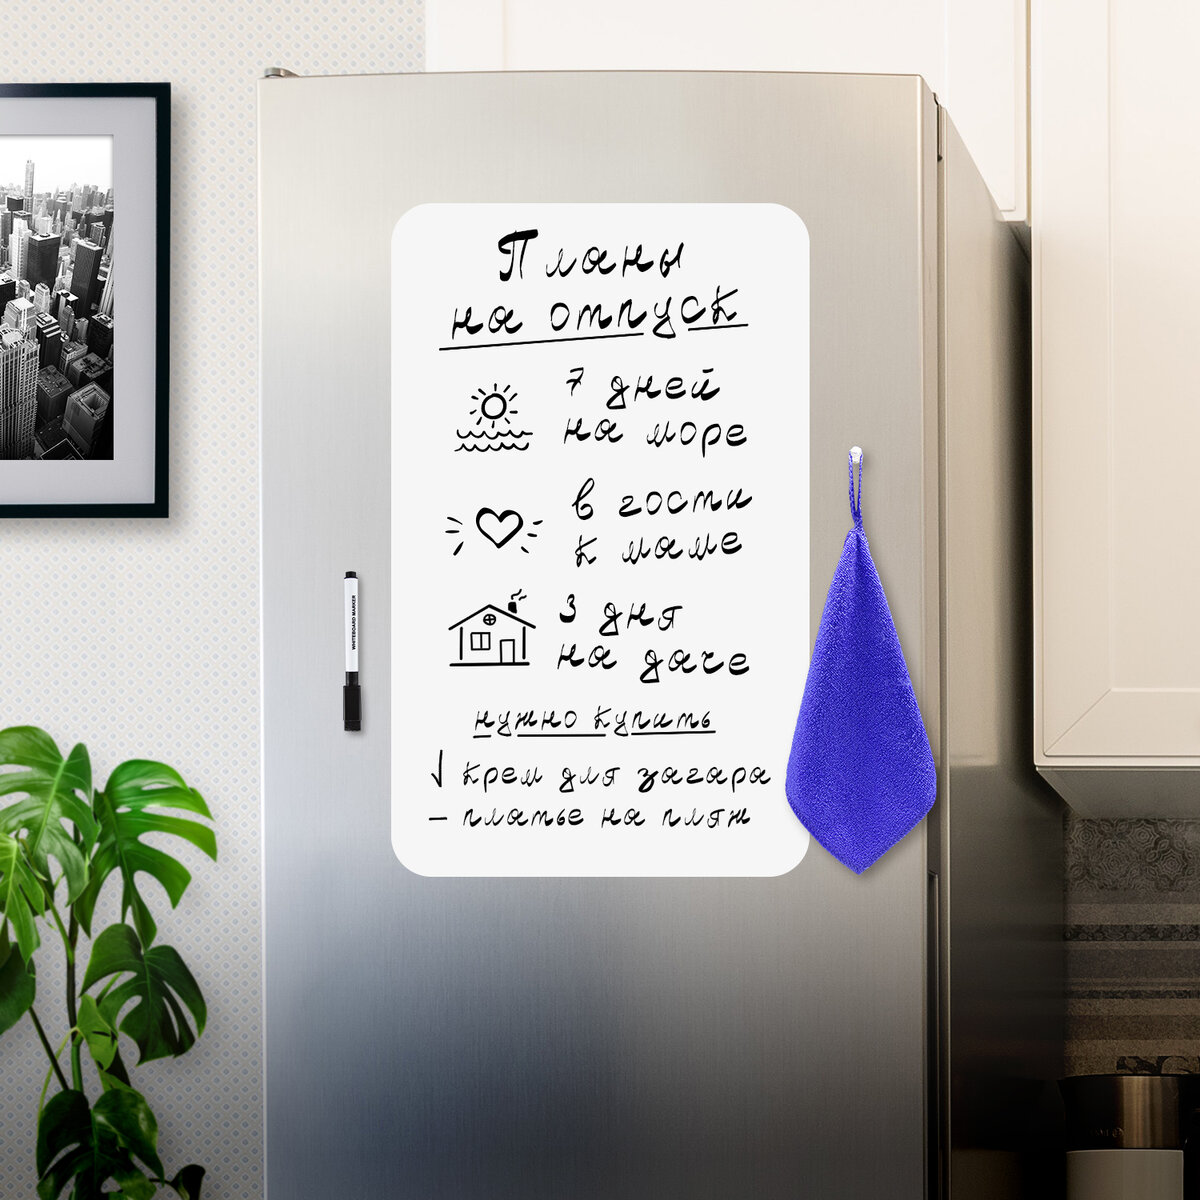 Планы
на отпуск
7 дней
на море
в гости
к маме
3 дня
на даче
нужно купить
√ крем для загара
– платье на пляж
WHITEBOARD MARKER